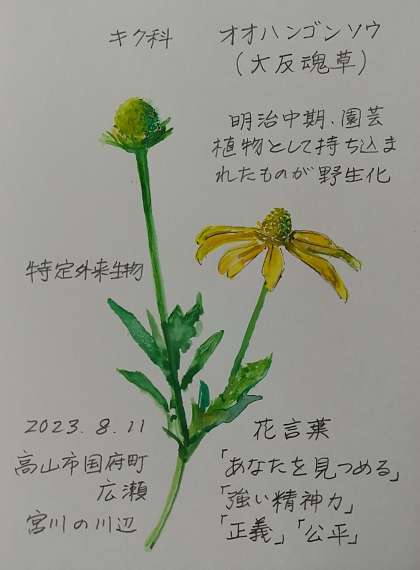 キク科
オオハンゴンソウ
(大反魂草)
明治中期、園芸
植物として持ち込ま
れたものが野生化
特定外来生物
2023.8.11
高山市国府町
広瀬
宮川の川辺
花言葉
「あなたを見つめる」
「強い精神力」
「正義」「公平」